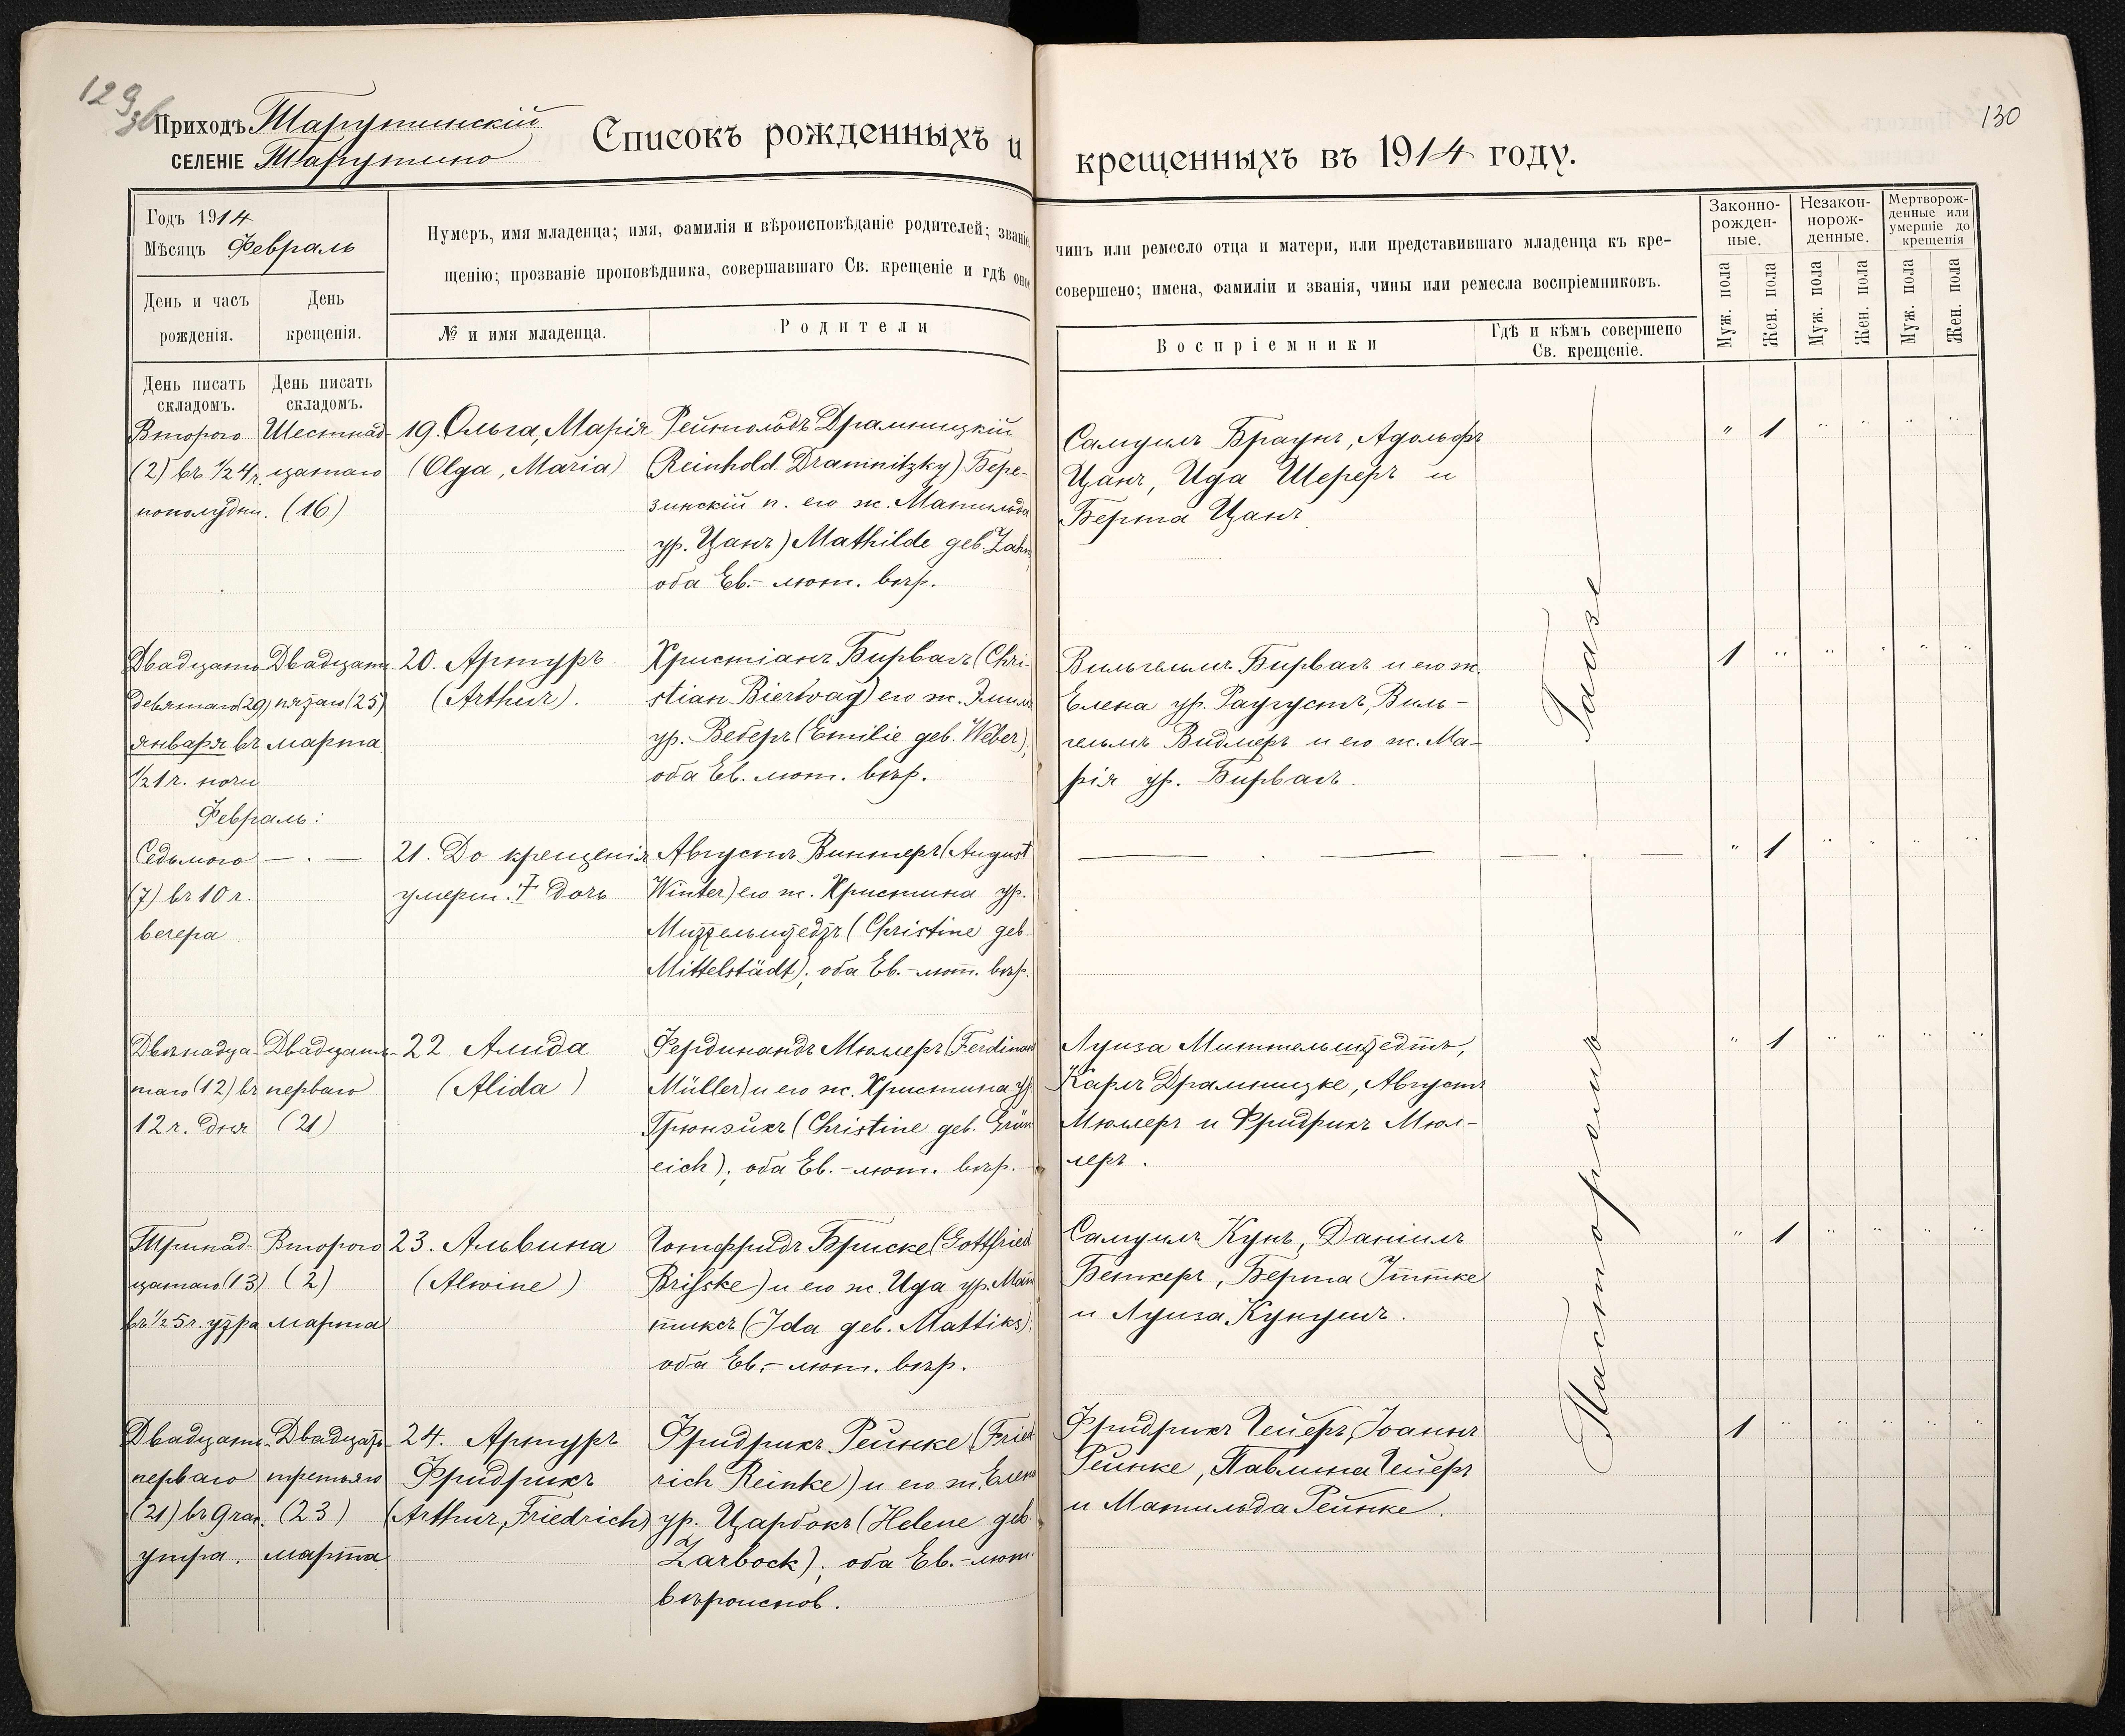 129
130
Приходъ Тарутинскій
СЕЛЕНІЕ Тарутино
Списокъ рожденныхъ и крещенныхъ въ 1914 году.
Годъ 1914
Мѣсяцъ Февраль
День и часъ рожденія.
День крещенія.
Нумеръ, имя младенца; имя, фамилія и вѣроисповѣданіе родителей; званіе, чинъ или ремесло отца и матери, или представившаго младенца къ кре-
щенію; прозваніе проповѣдника, совершавшаго Св. крещеніе и гдѣ оно совершено; имена, фамиліи и званія, чины или ремесла воспріемниковъ.
№ и имя младенца.
Родители
Воспріемники
Гдѣ и кѣмъ совершено
Св. крещеніе.
Законно-
рожден-
ные.
Незакон-
норож-
денные.
Мертворож-
денные или
умершіе до
крещенія
Муж. пола
Жен. пола
Муж. пола
Жен. пола
Муж. пола
Жен. пола
День писать
складомъ.
День писать
складомъ.
Второго
(2) въ ½4ч.
пополудни.
Шестнад-
цатаго
(16)
19. Ольга, Марія
(Olga, Maria)
Рейнгольдъ Драмницкій
(Reinhold Dramnitzky) Бере-
зинскій п. его ж. Матильда
ур. Цанъ) Mathilde geb. Zahn
оба Ев.-лют. вѣр.
Самуилъ Браунъ, Адольфъ
Цанъ, Ида Шереръ и
Берта Цанъ
" 1 " " " "
Двадцать
девятаго (29)
января въ
½1ч. ночи
Двадцать-
пятаго (25)
марта
20. Артуръ
(Arthur).
Христіанъ Бирвагъ (Chri-
stian Bierwag) его ж. Эмилія
ур. Веберъ (Emilie geb. Weber),
оба Ев. лют. вѣр.
Вильгельмъ Бирвагъ и его ж.
Елена ур. Раугустъ, Виль-
гельмъ Видмеръ и его ж. Ма-
рія ур. Бирвагъ.
1 " " " " "
Февраль:
Седьмого
(7) въ 10 ч.
вечера
— . —
21. До крещенія
умерш. † дочь
Августъ Винтеръ (August
Winter) его ж. Христина ур.
Миттельштедтъ (Christine geb.
Mittelstädt); оба Ев.-лют. вѣр.
— . —
— . —
" 1 " " " "
Двѣнадца-
таго (12) въ
12 ч. дня
Двадцать-
перваго
(21)
22. Алида
(Alida)
Фердинандъ Мюллеръ (Ferdinand
Müller) и его ж. Христина ур.
Грюнэйхъ (Christine geb. Grün-
eich); оба Ев.-лют. вѣр.
Луиза Миттельштедтъ,
Карлъ Драмницке, Августъ
Мюллеръ и Фридрихъ Мюл-
леръ.
" 1 " " " "
Тринад-
цатаго (13)
въ ½5ч. утра
Второго
(2)
марта
23. Альвина
(Alwine)
Готфридъ Бриске (Gottfried
Briſske) и его ж. Ида ур. Мат-
тиксъ (Ida geb. Mattiks);
оба Ев.-лют. вѣр.
Самуилъ Кунъ, Даніилъ
Беткеръ, Берта Іттке
и Луиза Кунушъ.
" 1 " " " "
Двадцать-
перваго
(21) въ 9 час.
утра.
Двадцать-
третьяго
(23)
марта
24. Артуръ
Фридрихъ
(Arthur, Friedrich)
Фридрихъ Рейнке (Fried-
rich Reinke) и его ж. Елена
ур. Царбокъ (Helene geb.
Zarbock); оба Ев.-лют.
вѣроиспов.
Фридрихъ Гейеръ, Іоаннъ
Рейнке, Павлина Гейеръ
и Матильда Рейнке.
1 " " " " "
Пасторомъ — Гаазе